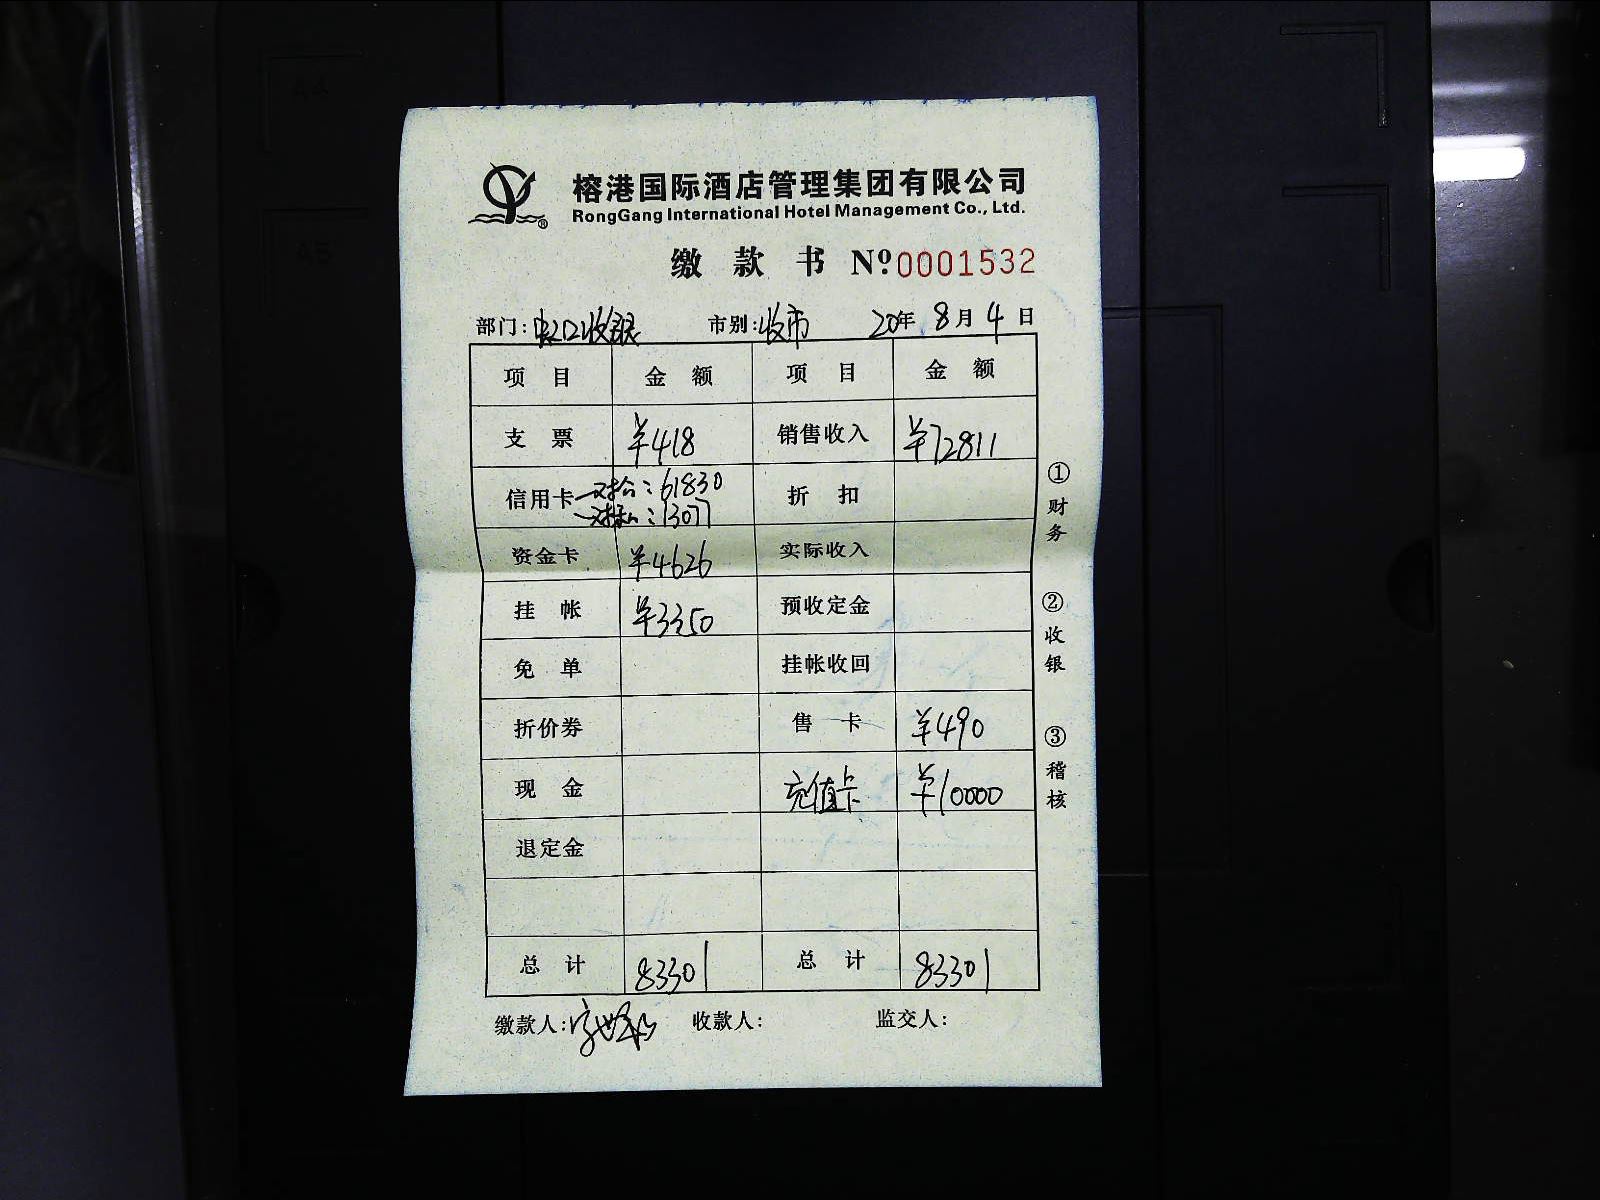 榕港国际酒店管理集团有限公司
RongGang International Hotel Management Co., Ltd.
缴款书 Nº 0001532
部门: 虹口收银 市别: 收市 20年 8月 4日
项目 金额 项目 金额
支票 ¥418 销售收入 ¥72811
信用卡 对公: 61830 折扣
对私: 13077
资金卡 ¥4626 实际收入
挂帐 ¥3350 预收定金
免单 挂帐收回
折价券 售卡 ¥490
现金 充值卡 ¥10000
退定金
总计 83301 总计 83301
缴款人: 收款人: 监交人:
①财务
②收银
③稽核
A4
A5